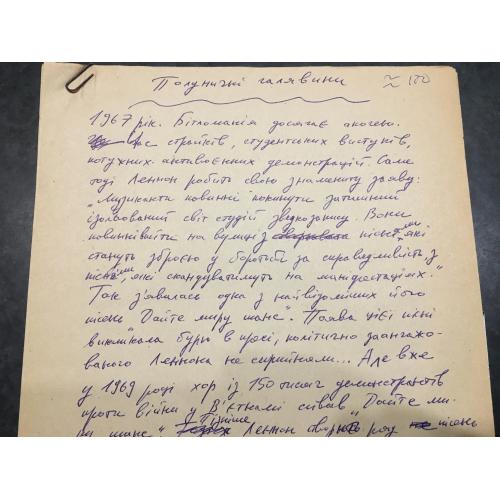 Полуничні галявини ≈ 100
1967 рік. Бітломанія досягає апогею.
Час страйків, студентських виступів,
потужних антивоєнних демонстрацій. Саме
тоді Леннон робить свою знамениту заяву:
„Музиканти повинні покинути затишний
ізольований світ студій звукозапису. Вони
повинні вийти на вулиці з піснями, які
стануть зброєю у боротьбі за справедливість, з
піснями, які скандуватимуть на маніфестаціях."
Так з'явилась одна з найвідоміших його
пісень „Дайте миру шанс". Поява цієї пісні
викликала бурю в пресі, політично заангажо-
ваного Леннона не сприйняли... Але вже
у 1969 році хор із 150 тисяч демонстрантів
проти війни у В'єтнамі співав „Дайте ми-
ру шанс". Пізніше Леннон створить ряд пісень